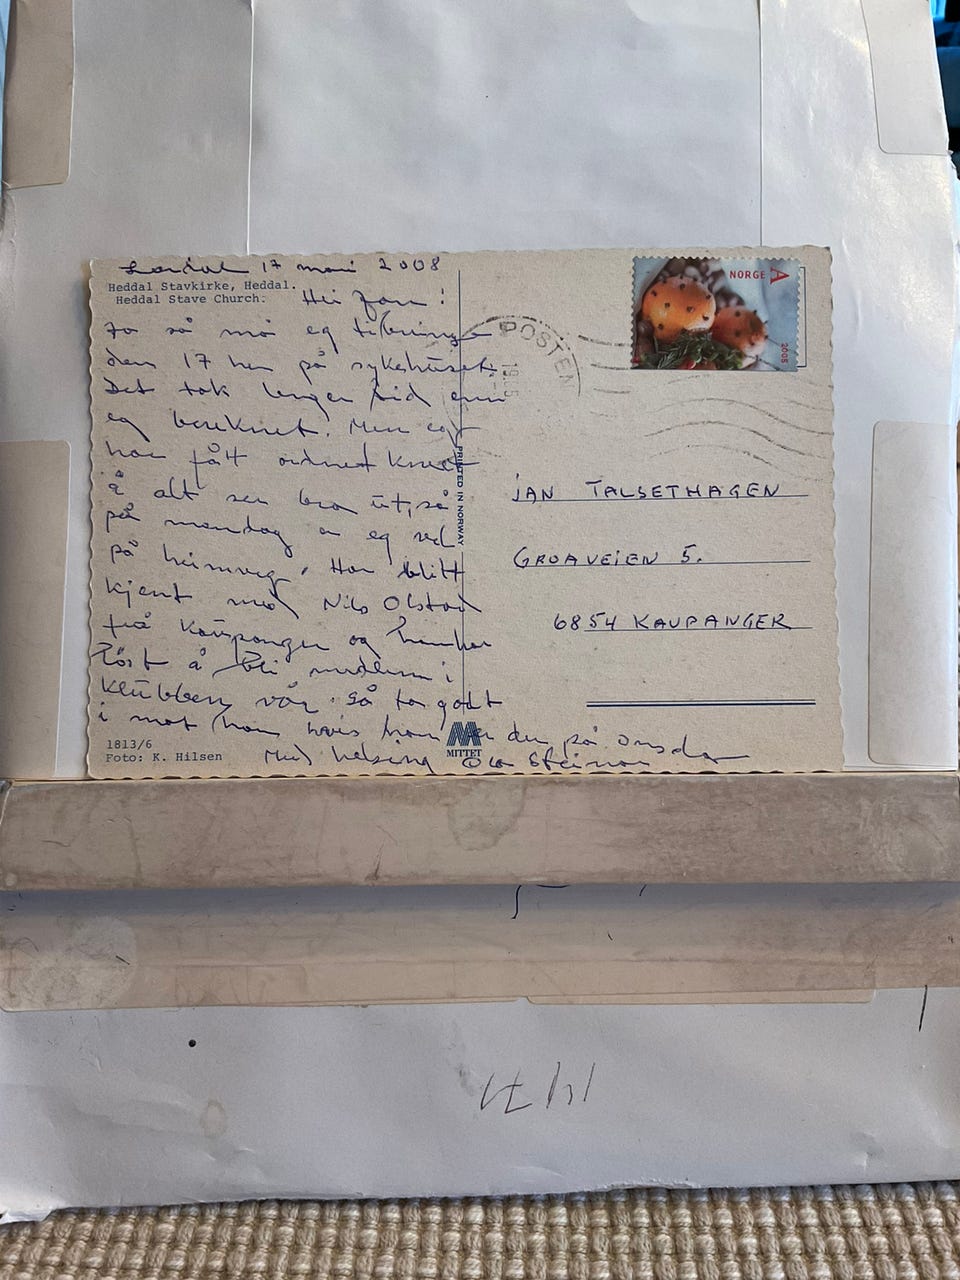 Lærdal 17 mai 2008
Heddal Stavkirke, Heddal.
Heddal Stave Church.
Hei Jan!
Jo så må eg tilbringe
den 17 her på sykehuset.
Det tok lenger tid enn
eg bereknet. Men eg
har fått ordnet kneet
å alt ser bra ut, så
på mandag er eg vel
på heimveg. Har blitt
kjent med Nils Olstad
frå Kaupanger og han har
löst å bli medlem i
klübben vår. Så ta godt
i mot han hvis han er der på onsdag
Med helsing Ola Steinar
1813/6
Foto: K. Hilsen
PRINTED IN NORWAY
MITTET
NORGE A
2005
POSTEN
JAN TALSETHAGEN
GROAVEIEN 5.
6854 KAUPANGER